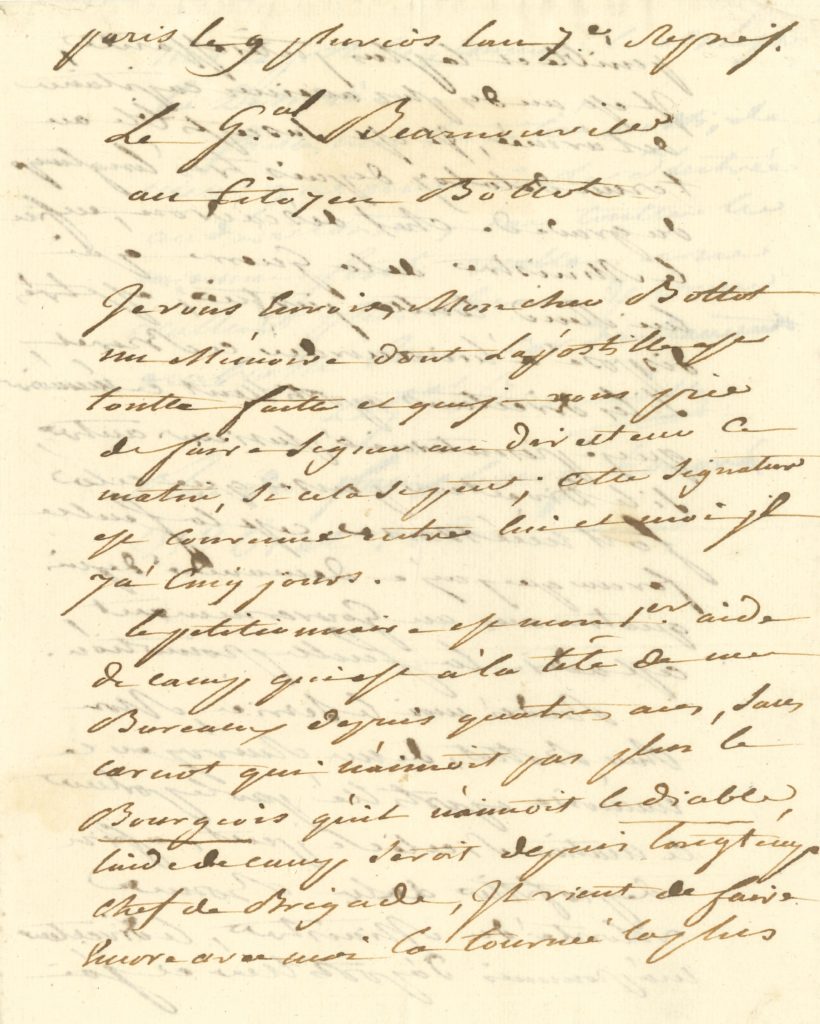 paris le 9 pluvios lan 7e. Repne f.
Le Gal. Beurnonville
au Citoyen Bottot
Je vous Envois, Mon cher Bottot
un Mémoire dont Lapostille est
toutte faitte et que je vous prie
de faire Signer au directeur ce
matin, Si cela Se peut; cette Signature
est convenue entre lui et moi il
y à Cinq jours.
le petitionnaire est mon 1er. aide
de camp qui est à la tête de mes
Bureaux depuis quatres ans, Sans
carnot qui n'aimoit pas plus le
Bourgeois qu'il n'aimoit le diable,
laide de camp Seroit depuis longtemps
chef de Brigade, Il vient de faire
Encore avec moi la tournée la plus